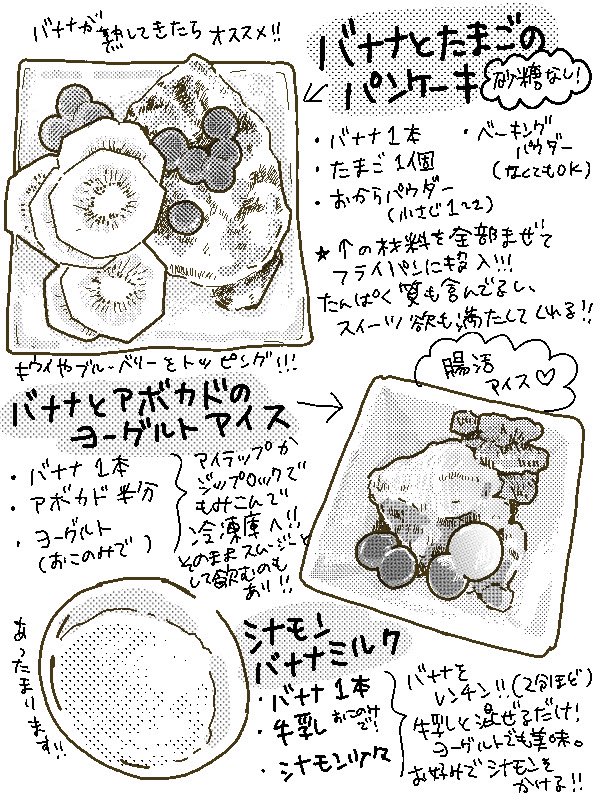 バナナが熟してきたらオススメ!!
バナナとたまごの
パンケーキ
砂糖なし!
・バナナ1本
・たまご1個
・おからパウダー
(小さじ1〜2)
・ベーキング
パウダー
(なくてもOK)
★↑の材料を全部まぜて
フライパンに投入!!!
たんぱく質も含んでるし、
スイーツ欲も満たしてくれる!!
キウイやブルーベリーをトッピング!!!
バナナとアボカドの
ヨーグルトアイス
腸活
アイス♡
・バナナ1本
・アボカド半分
・ヨーグルト
(おこのみで)
アイラップか
ジップロックで
もみこんで
冷凍庫へ!!
そのままスムージーと
して飲むのも
あり!!
あったまります!!
シナモン
バナナミルク
・バナナ1本
・牛乳 おこのみで!
・シナモン
バナナを
レンチン!!(2分ほど)
牛乳と混ぜるだけ!
ヨーグルトでも美味。
お好みでシナモンを
かける!!